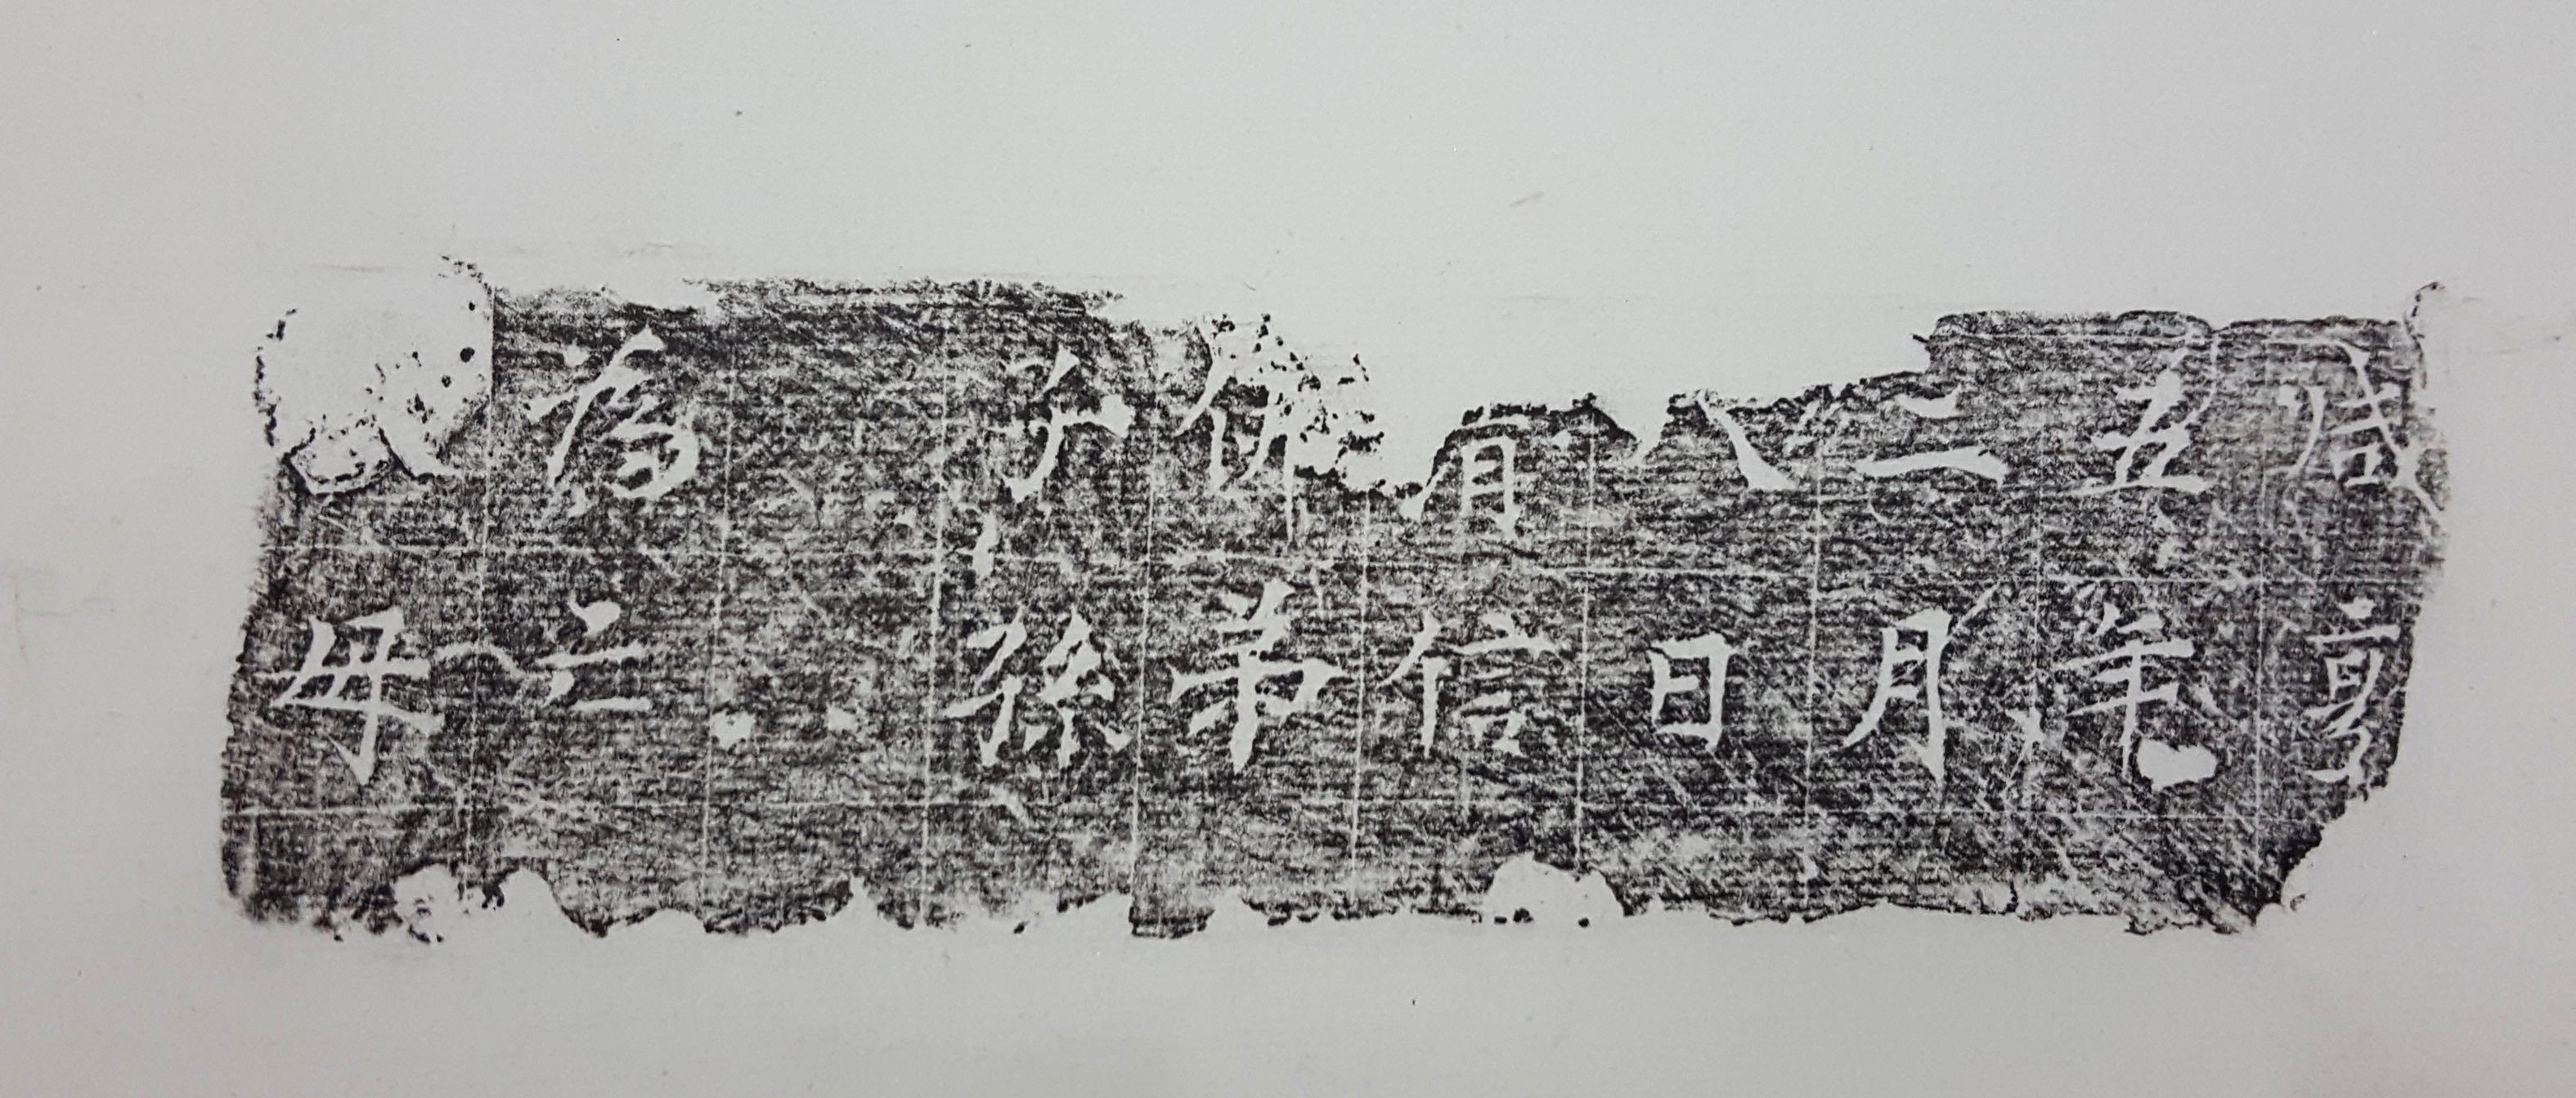 咸亨
五年
二月
八日
清信
佛弟
子孫
為亡
父母